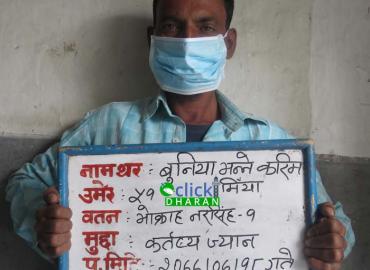 नामथर : बुनिया भन्ने करिम
उमेर : ४१ मिया
click
DHARAN
वतन : भोक्राह नरसिंह-१
मुद्दा : कर्तव्य ज्यान
प.मिति : २०७७/०६/१८ गते